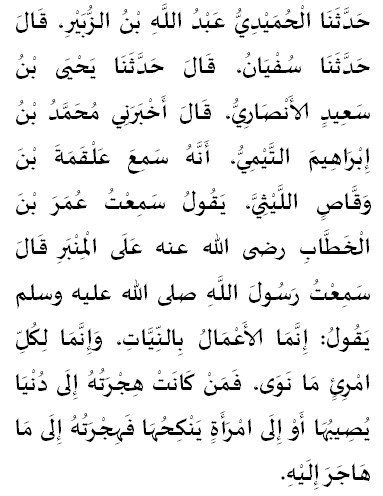 حَدَّثَنَا الْحُمَيْدِيُّ عَبْدُ اللَّهِ بْنُ الزُّبَيْرِ. قَالَ
حَدَّثَنَا سُفْيَانُ. قَالَ حَدَّثَنَا يَحْيَى بْنُ
سَعِيدٍ الأَنْصَارِيُّ. قَالَ أَخْبَرَنِي مُحَمَّدُ بْنُ
إِبْرَاهِيمَ التَّيْمِيُّ. أَنَّهُ سَمِعَ عَلْقَمَةَ بْنَ
وَقَّاصٍ اللَّيْثِيَّ. يَقُولُ سَمِعْتُ عُمَرَ بْنَ
الْخَطَّابِ رضى الله عنه عَلَى الْمِنْبَرِ قَالَ
سَمِعْتُ رَسُولَ اللَّهِ صلى الله عليه وسلم
يَقُولُ: إِنَّمَا الأَعْمَالُ بِالنِّيَّاتِ. وَإِنَّمَا لِكُلِّ
امْرِئٍ مَا نَوَى. فَمَنْ كَانَتْ هِجْرَتُهُ إِلَى دُنْيَا
يُصِيبُهَا أَوْ إِلَى امْرَأَةٍ يَنْكِحُهَا فَهِجْرَتُهُ إِلَى مَا
هَاجَرَ إِلَيْهِ.